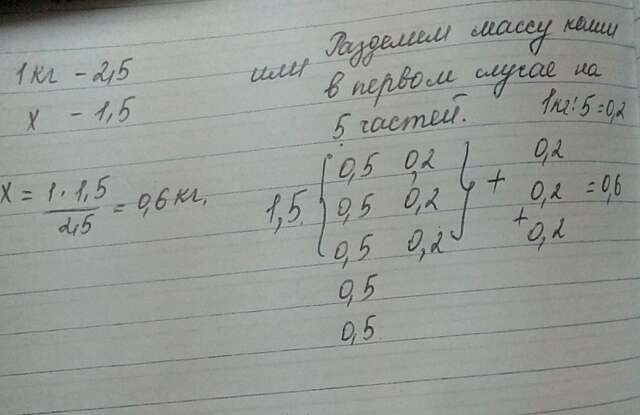 1кг - 2,5
х - 1,5
х = 1 · 1,5 / 2,5 = 0,6 кг.
или Разделим массу каши
в первом случае на
5 частей. 1кг:5=0,2
1,5 { 0,5 0,2 } + 0,2
0,5 0,2 0,2 = 0,6
0,5 0,2 + 0,2
0,5
0,5